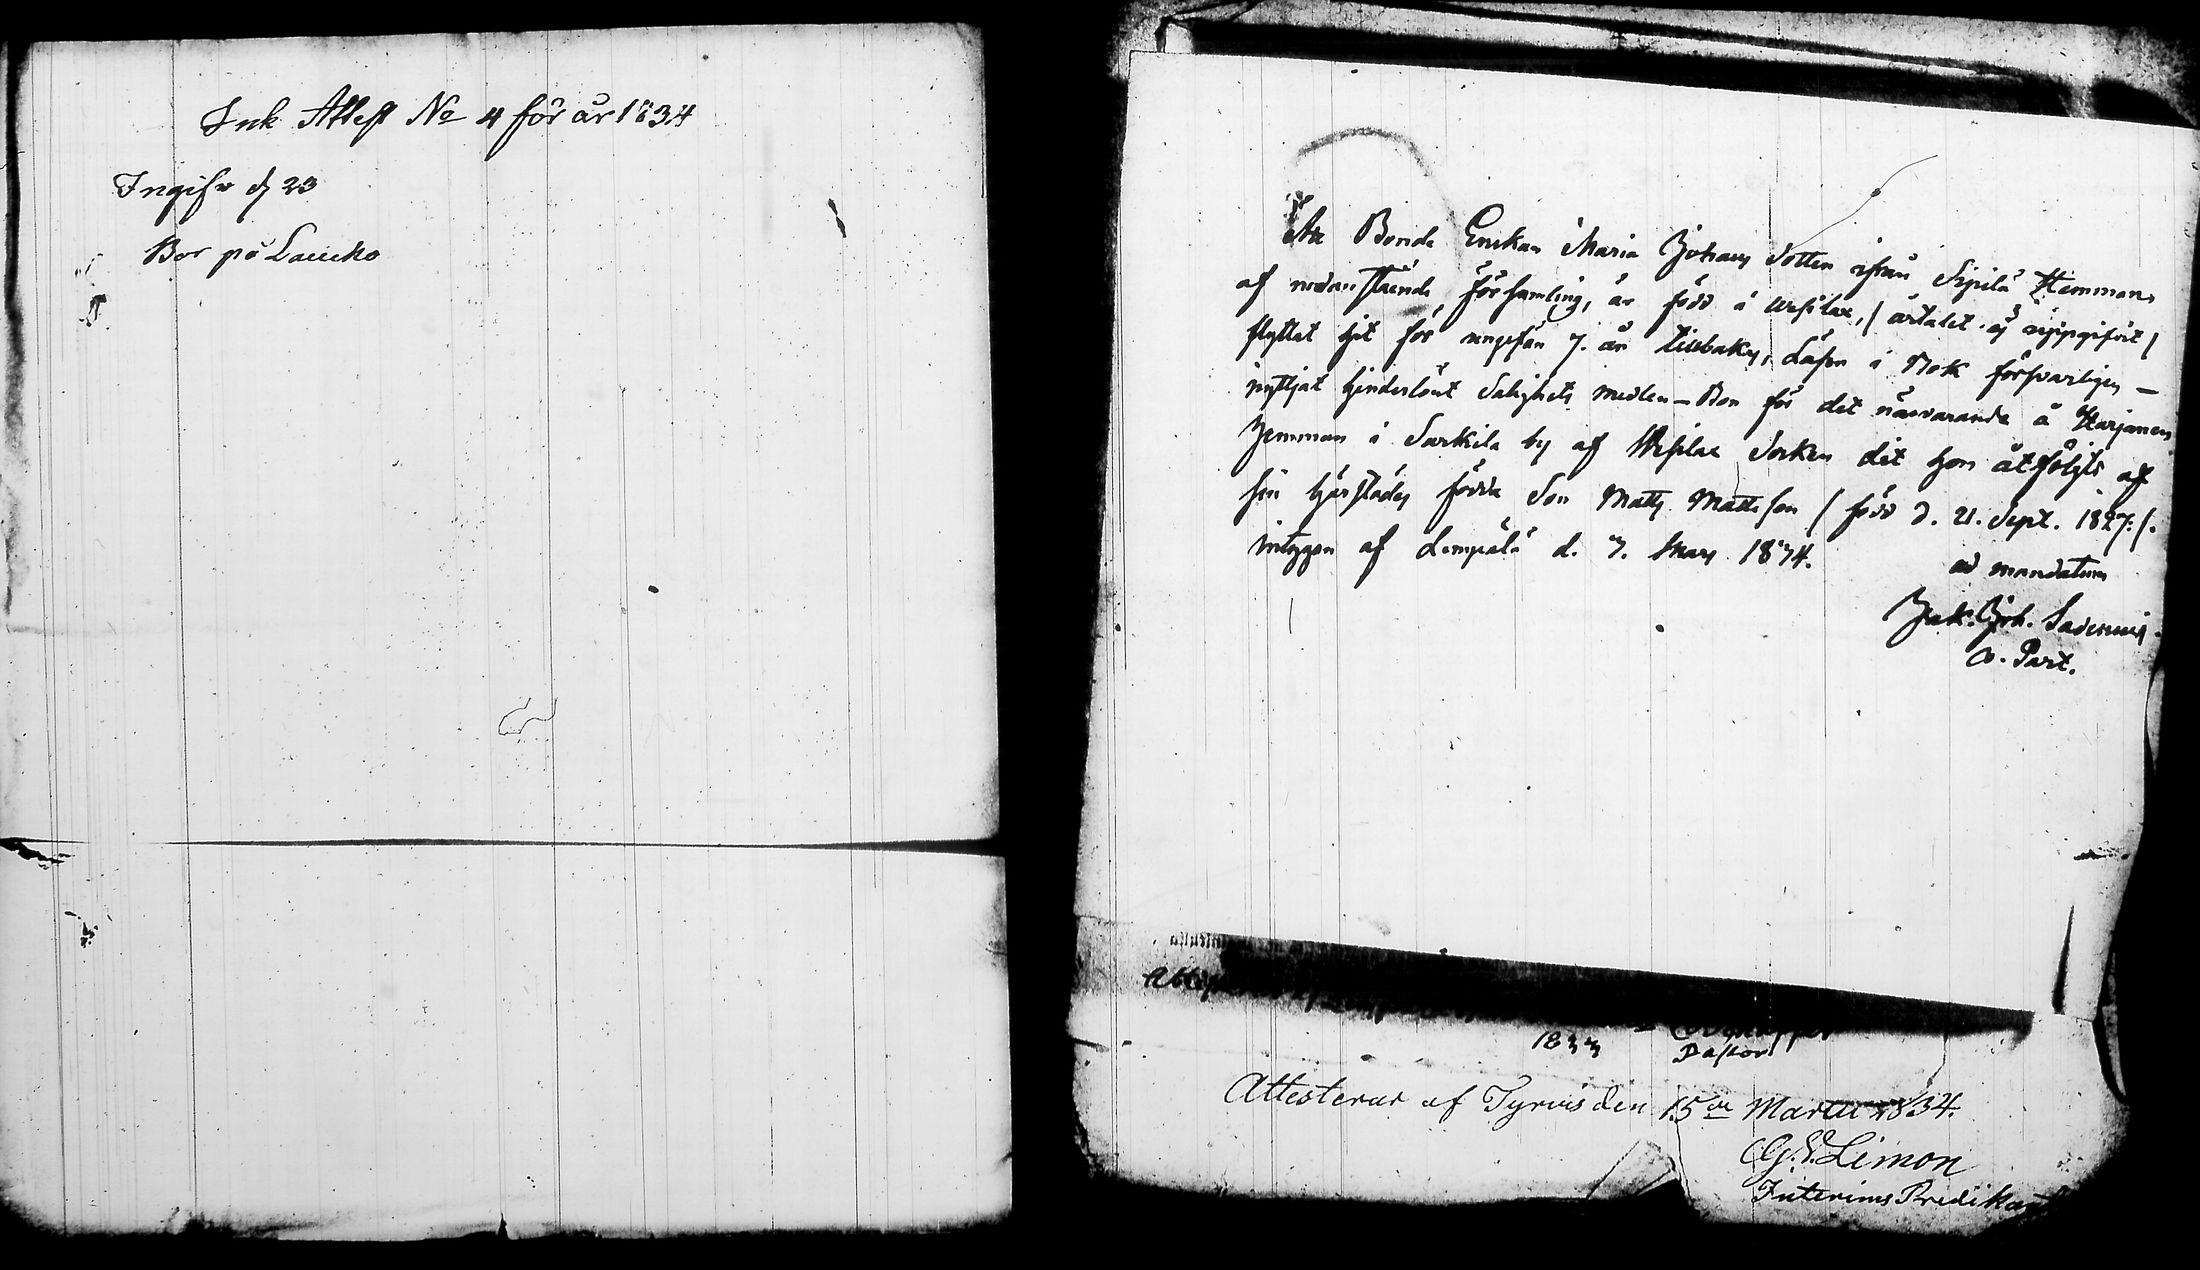 Ink Attest No 4 för år 1834
Ingifv d 23
Bor på Laucko
Att Bonde Enckan Maria Johans dotter ifrån Sipilä Hemman
af nedanstående församling, är född i Wesilax, / årtalet ej uppgifvit /
flyttat hit för ungefär 7. år tillbaka, Läser i Bok försvarligen –
nyttjat hinderlöst Salighets medlen – Bor för det närvarande å Harjanen
hemman i Sarkila by af Wesilax Socken dit hon åtföljts af
sin härstädes födda Son Matts Mattsson / född d. 21. Sept. 1827. /.
intyggar af Lempälä d. 7. Mars 1834.
ad mandatum
Jak. Joh.
v. Past.
1833
Pastor
Attesterar af Tyrvis den 15de Martii 1834.
G. E. Limon
Interims Predikant